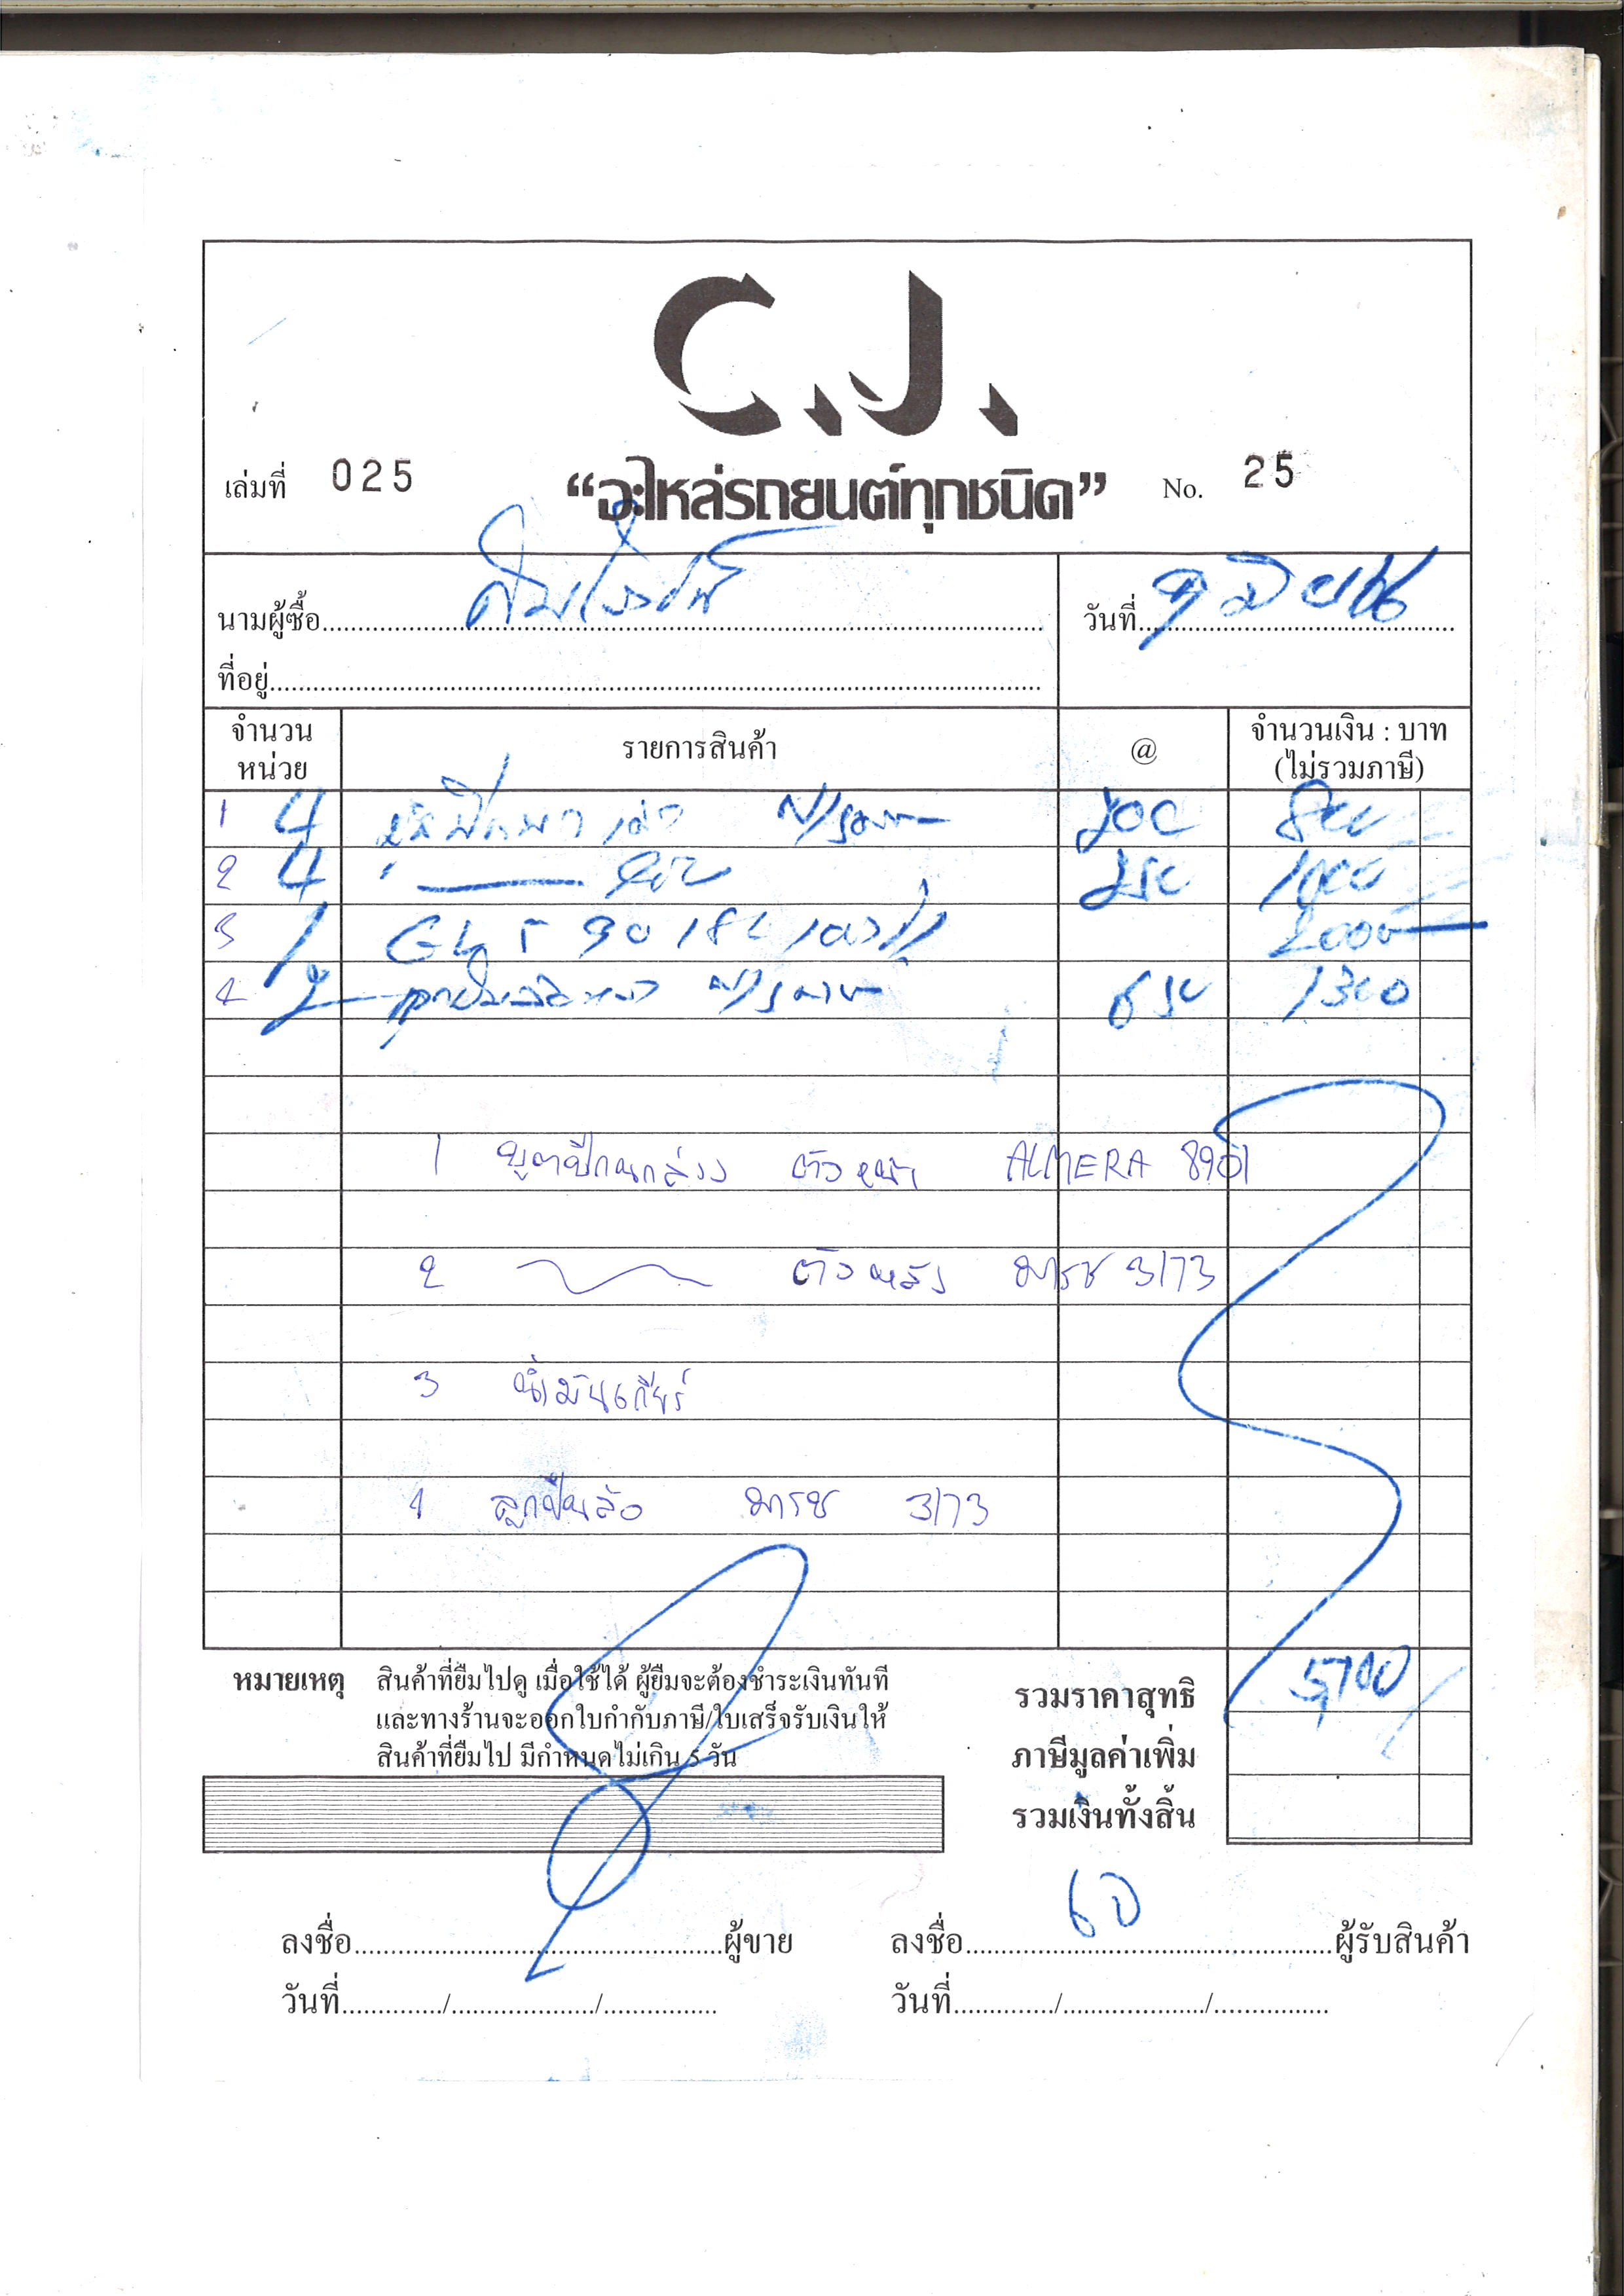 C.J.
เล่มที่ 025 “อะไหล่รถยนต์ทุกชนิด” No. 25
นามผู้ซื้อ
วันที่
ที่อยู่
จำนวนหน่วย รายการสินค้า @ จำนวนเงิน : บาท (ไม่รวมภาษี)
1 4 200 800
2 4 250 1000
3 1 GL 5 90 18L 2000
4 2 650 1300
1 บูตปีกนกล่าง ตัวหน้า ALMERA 8901
2 ตัวหลัง มารช 3173
3 น้ำมันเกียร์
4 ลูกปืนล้อ มารช 3173
หมายเหตุ สินค้าที่ยืมไปดู เมื่อใช้ได้ ผู้ยืมจะต้องชำระเงินทันที
และทางร้านจะออกใบกำกับภาษี/ใบเสร็จรับเงินให้
สินค้าที่ยืมไป มีกำหนดไม่เกิน 5 วัน
รวมราคาสุทธิ 5,100
ภาษีมูลค่าเพิ่ม
รวมเงินทั้งสิ้น
ลงชื่อ ผู้ขาย ลงชื่อ ผู้รับสินค้า
วันที่ / / วันที่ / /